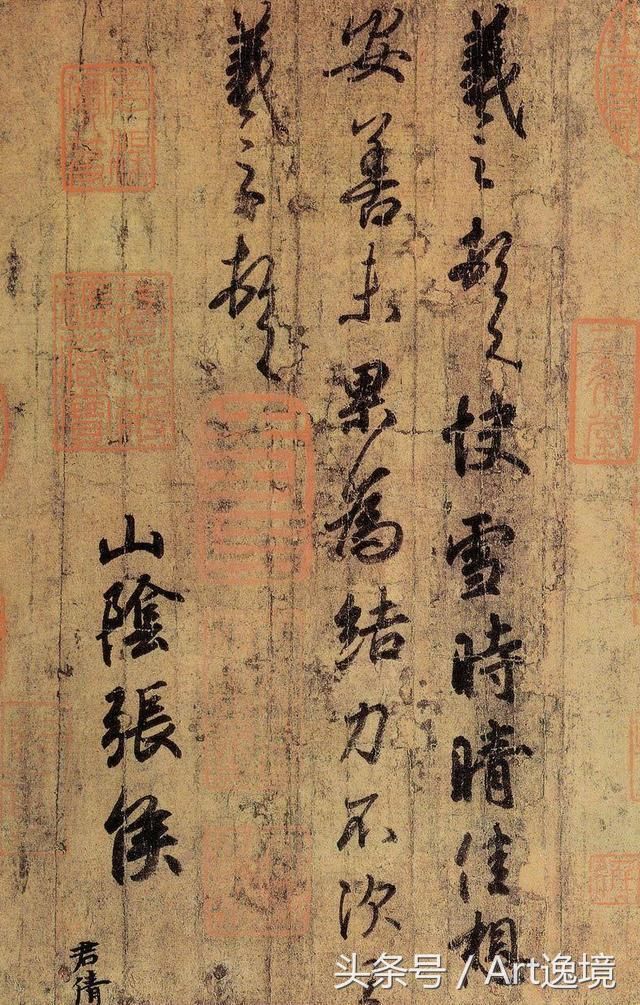 羲之頓首快雪時晴佳想
安善未果為結力不次王
羲之頓首
山陰張侯
君倩
头条号 / Art逸境